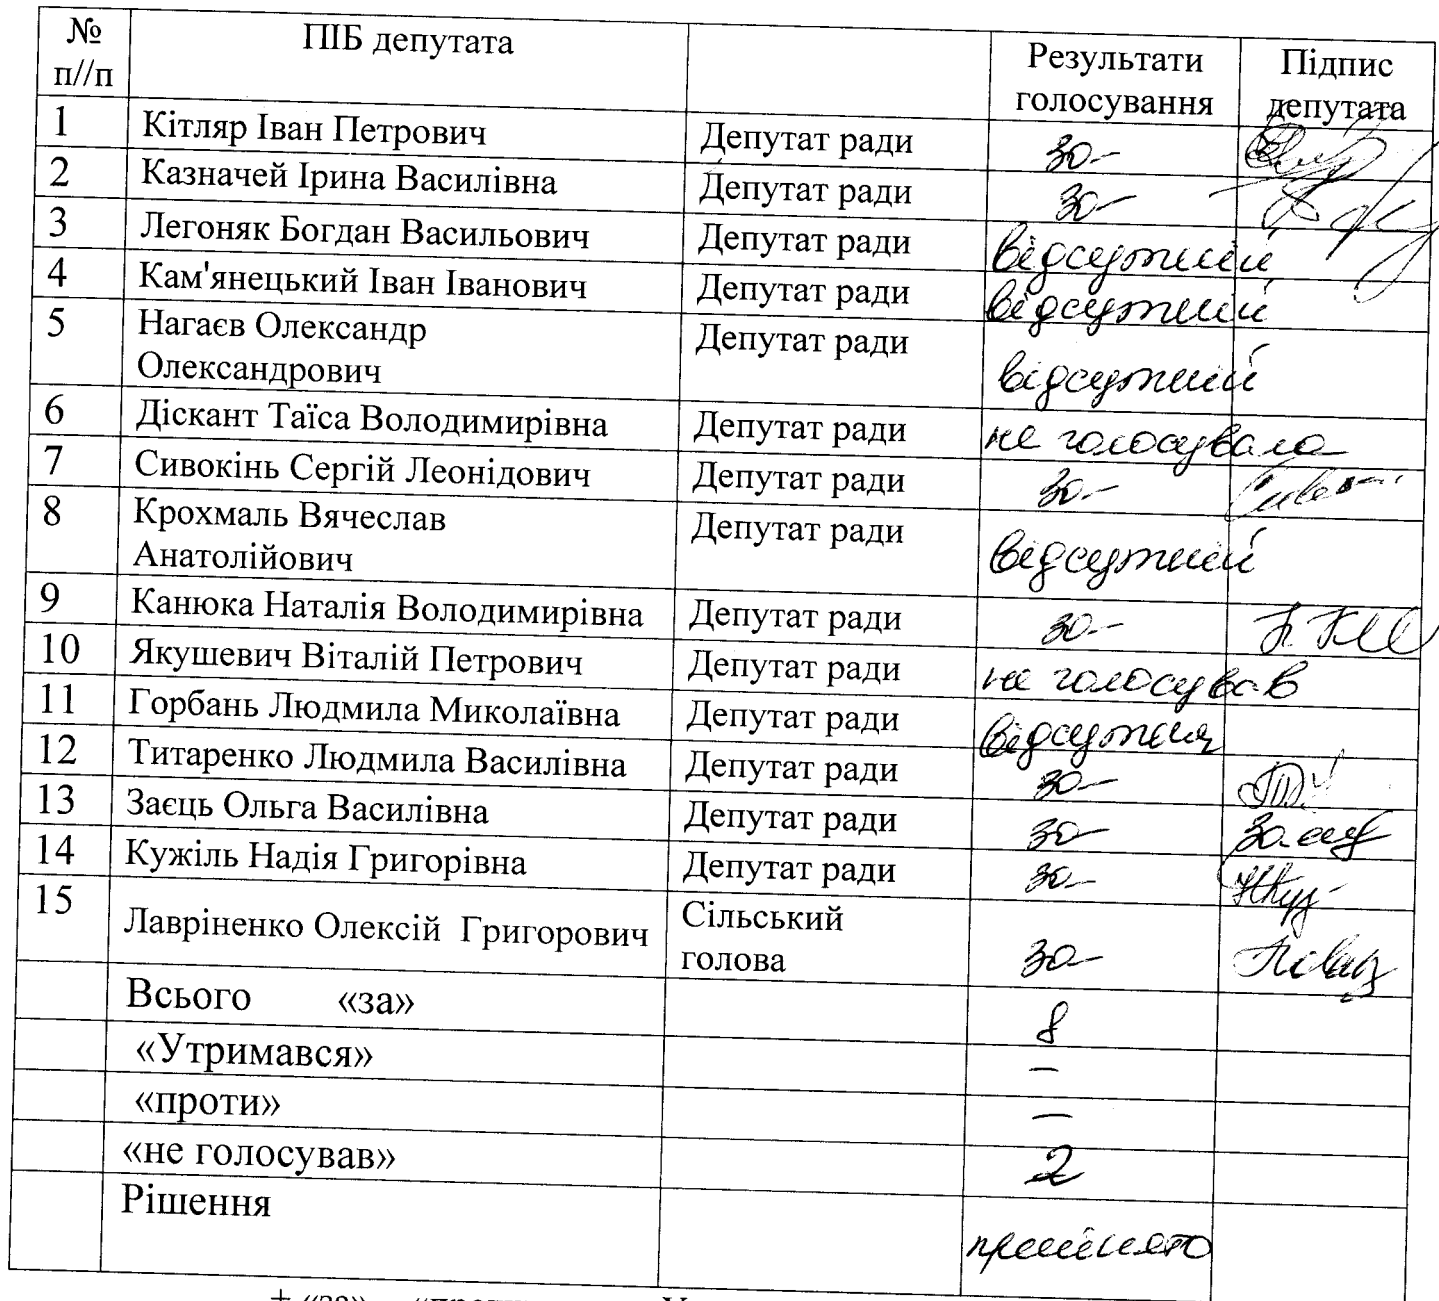 № п//п ПІБ депутата Результати голосування Підпис депутата
1 Кітляр Іван Петрович Депутат ради за
2 Казначей Ірина Василівна Депутат ради за
3 Легоняк Богдан Васильович Депутат ради відсутній
4 Кам'янецький Іван Іванович Депутат ради відсутній
5 Нагаєв Олександр Депутат ради
Олександрович відсутній
6 Діскант Таїса Володимирівна Депутат ради не голосувала
7 Сивокінь Сергій Леонідович Депутат ради за
8 Крохмаль Вячеслав Депутат ради
Анатолійович відсутній
9 Канюка Наталія Володимирівна Депутат ради за
10 Якушевич Віталій Петрович Депутат ради не голосував
11 Горбань Людмила Миколаївна Депутат ради відсутня
12 Титаренко Людмила Василівна Депутат ради за
13 Заєць Ольга Василівна Депутат ради за
14 Кужіль Надія Григорівна Депутат ради за
15 Лавріненко Олексій Григорович Сільський
голова за
Всього «за» 8
«Утримався» –
«проти» –
«не голосував» 2
Рішення
прийнято